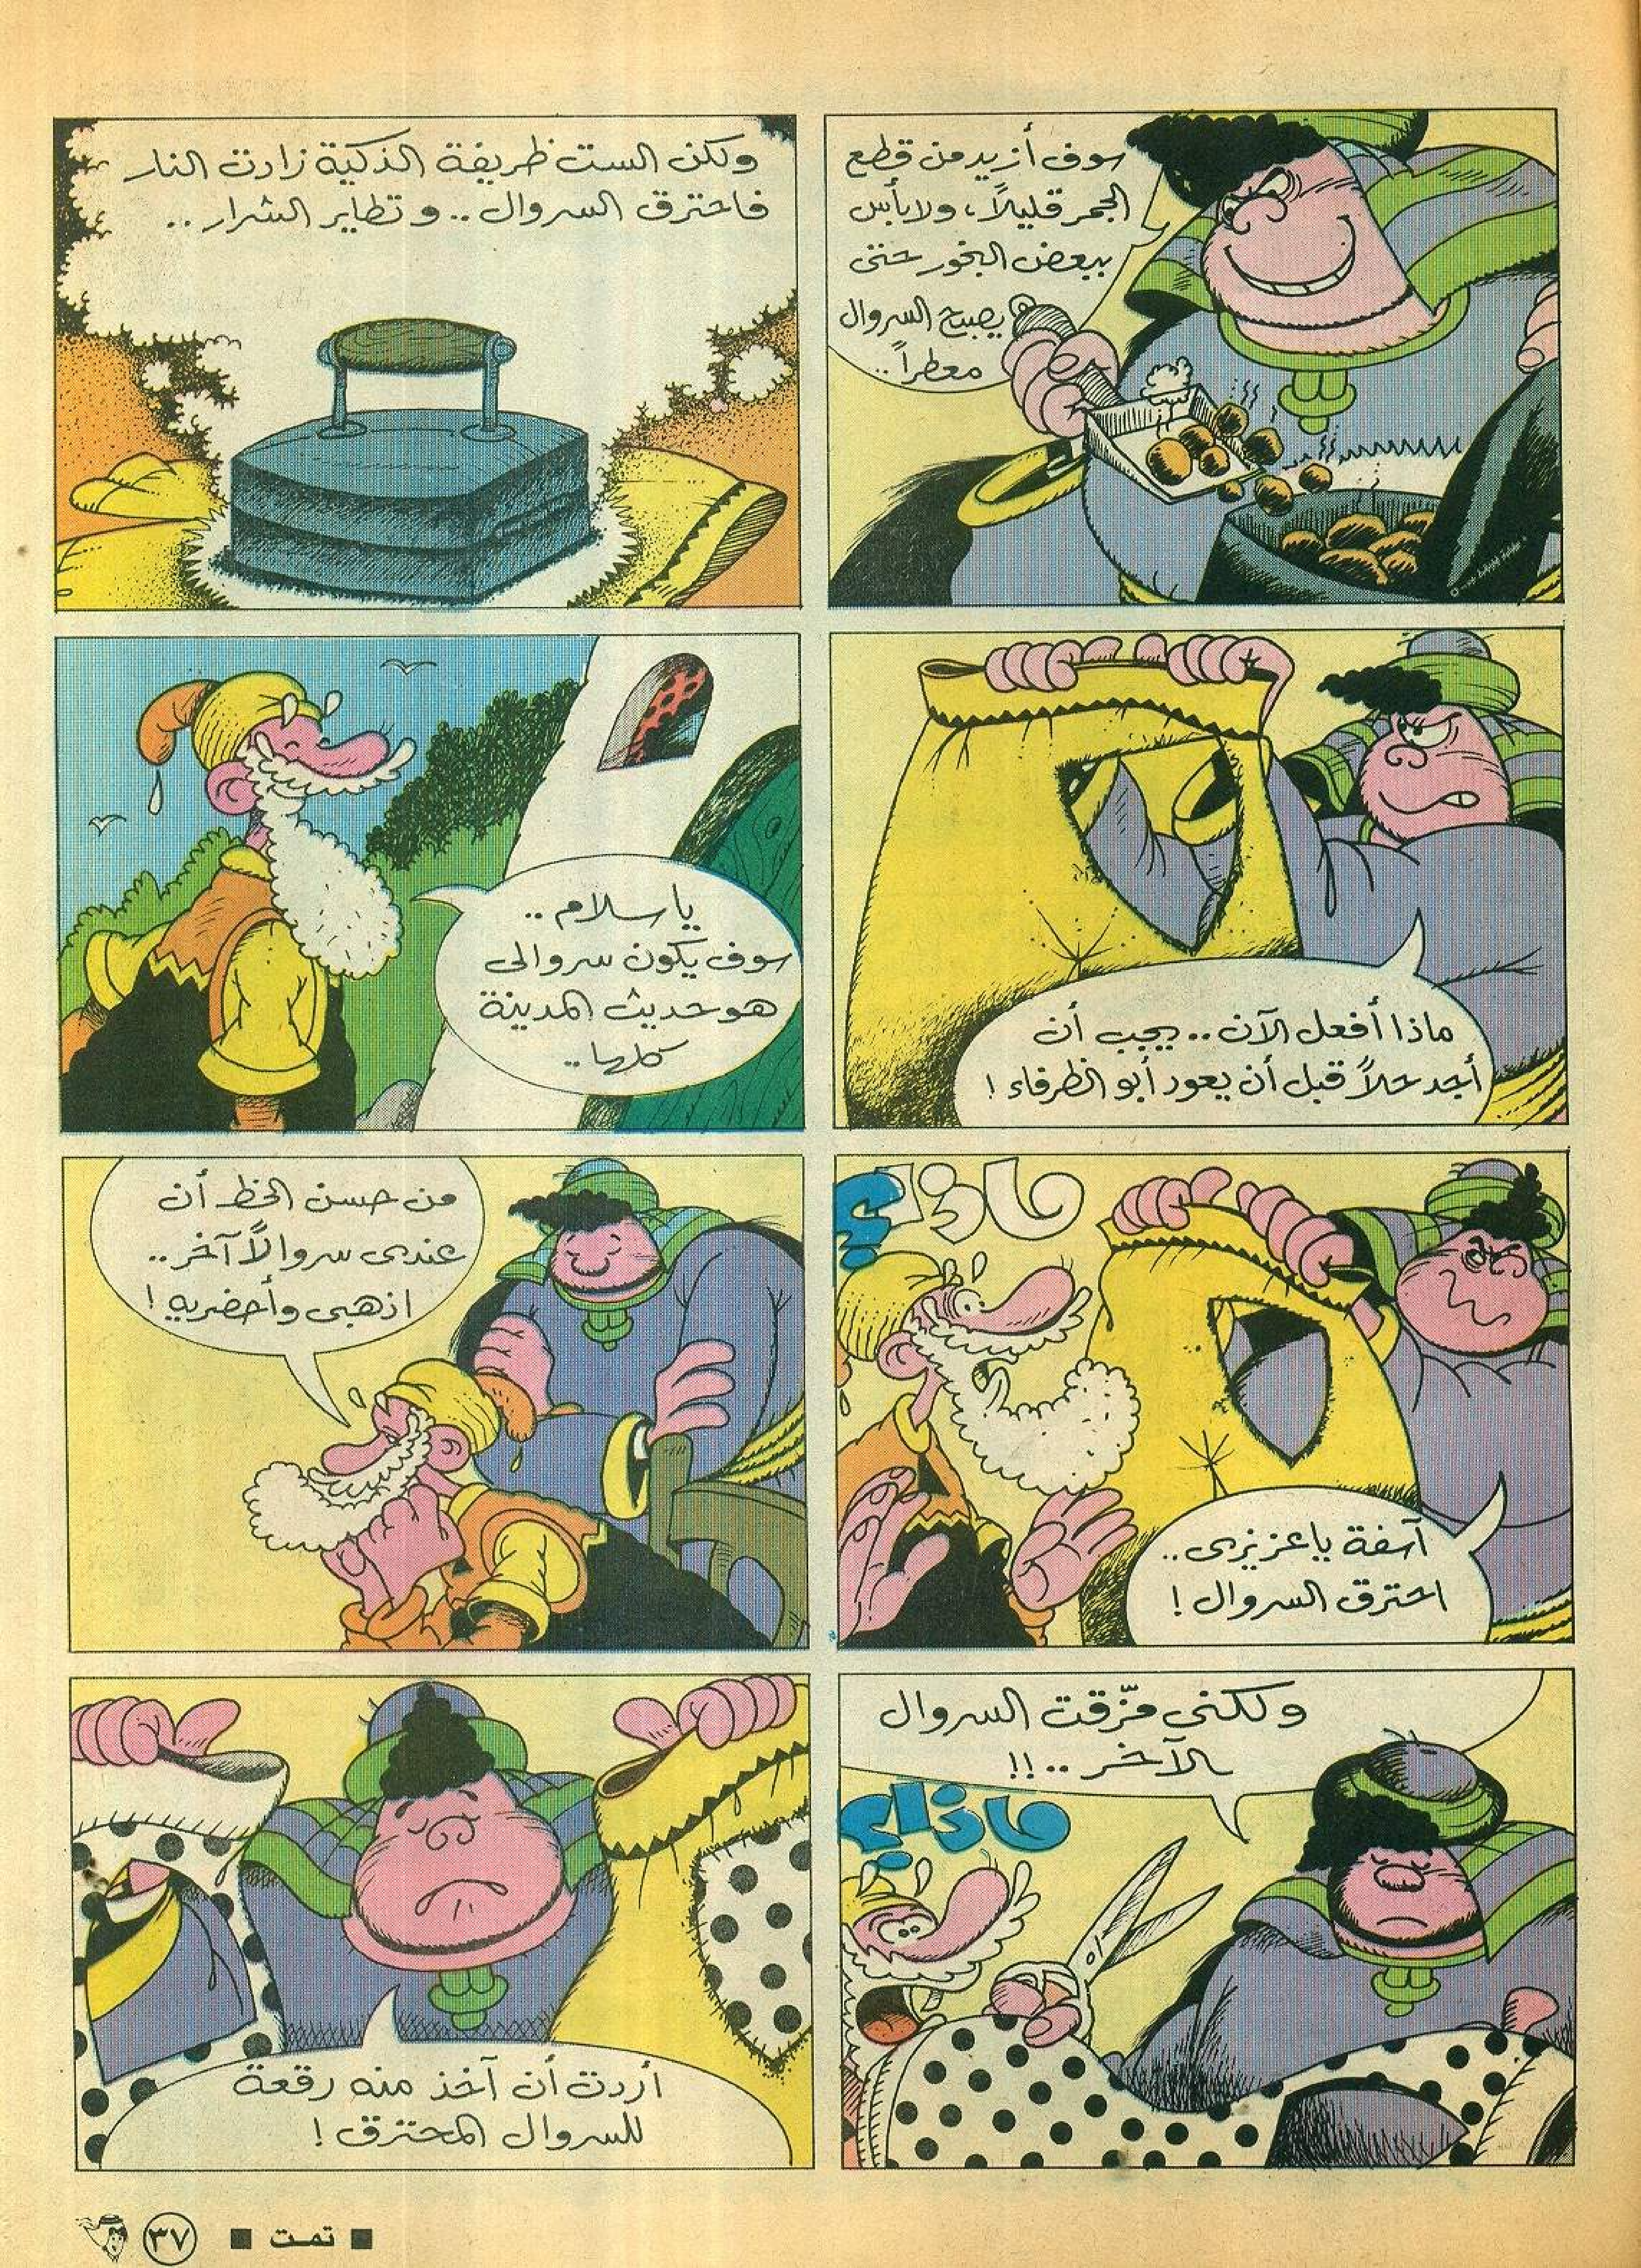 سوف أزيد من قطع
الجمر قليلاً، ولا بأس
ببعض البخور حتى
يصبح السروال
معطراً ..
ولكن الست ظريفة الذكية زادت النار
فاحترق السروال .. وتطاير الشرار ..
ماذا أفعل الآن .. يجب أن
أجد حلاً قبل أن يعود أبو الظرفاء !
يا سلام ..
سوف يكون سروالى
هو حديث المدينة
كلها ..
ماذا؟
آسفة يا عزيزى ..
احترق السروال !
من حسن الحظ أن
عندى سروالاً آخر ..
اذهبى وأحضريه !
ولكنى مزّقت السروال
الآخر .. !!
ماذا؟
أردت أن آخذ منه رقعة
للسروال المحترق !
■ تمت ■ ٣٧